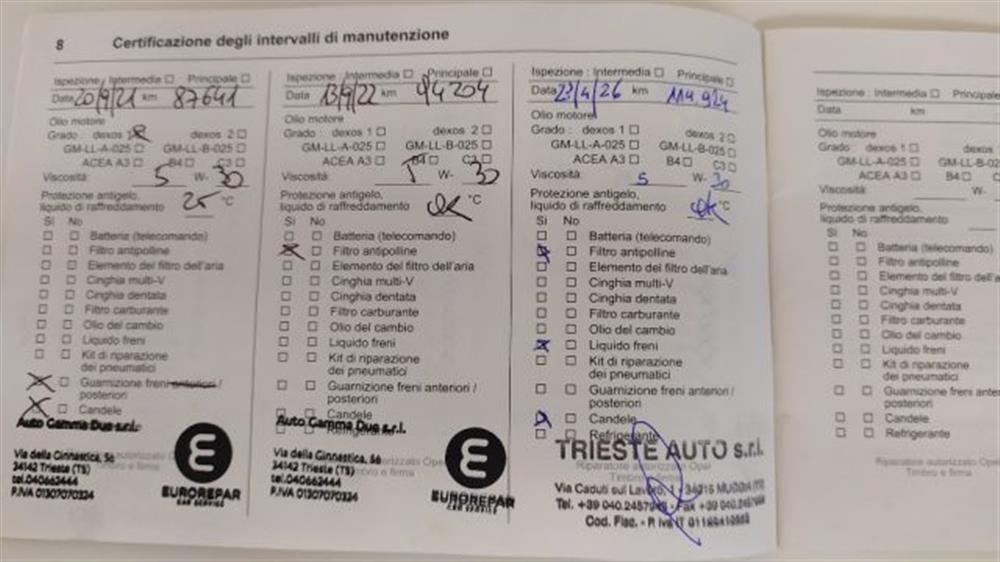 8 Certificazione degli intervalli di manutenzione
Ispezione : Intermedia Principale
Data 20/9/21 km 87641
Olio motore
Grado : dexos 1 dexos 2
GM-LL-A-025 GM-LL-B-025
ACEA A3 B4 C3
Viscosità 5 W- 30
Protezione antigelo,
liquido di raffreddamento 25 °C
Sì No
Batteria (telecomando)
Filtro antipolline
Elemento del filtro dell'aria
Cinghia multi-V
Cinghia dentata
Filtro carburante
Olio del cambio
Liquido freni
Kit di riparazione
dei pneumatici
Guarnizione freni anteriori /
posteriori
Candele
Auto Gamma Due s.r.l.
Via della Ginnastica, 56
34142 Trieste (TS)
tel.040662444
P.IVA 01307070324
EUROREPAR
CAR SERVICE
Ispezione : Intermedia Principale
Data 13/9/22 km 94204
Olio motore
Grado : dexos 1 dexos 2
GM-LL-A-025 GM-LL-B-025
ACEA A3 B4 C3
Viscosità: 5 W- 30
Protezione antigelo,
liquido di raffreddamento ok °C
Sì No
Batteria (telecomando)
Filtro antipolline
Elemento del filtro dell'aria
Cinghia multi-V
Cinghia dentata
Filtro carburante
Olio del cambio
Liquido freni
Kit di riparazione
dei pneumatici
Guarnizione freni anteriori /
posteriori
Candele
Refrigerante
Auto Gamma Due s.r.l.
Via della Ginnastica, 56
34142 Trieste (TS)
tel.040662444
P.IVA 01307070324
EUROREPAR
CAR SERVICE
Ispezione : Intermedia Principale
Data 23/4/26 km 114924
Olio motore
Grado : dexos 1 dexos 2
GM-LL-A-025 GM-LL-B-025
ACEA A3 B4 C3
Viscosità: 5 W- 30
Protezione antigelo,
liquido di raffreddamento ok °C
Sì No
Batteria (telecomando)
Filtro antipolline
Elemento del filtro dell'aria
Cinghia multi-V
Cinghia dentata
Filtro carburante
Olio del cambio
Liquido freni
Kit di riparazione
dei pneumatici
Guarnizione freni anteriori /
posteriori
Candele
Refrigerante
TRIESTE AUTO s.r.l.
Riparatore autorizzato Opel
Timbro e firma
Via Caduti sul Lavoro, 1 - 34015 MUGGIA (TS)
Tel. +39 040.2457 - Fax +39 040.2457
Cod. Fisc. - P. Iva IT
Ispezione : Intermedia Principale
Data km
Olio motore
Grado : dexos 1 dexos
GM-LL-A-025 GM-LL-B
ACEA A3 B4 C
Viscosità: W-
Protezione antigelo,
liquido di raffreddamento
Sì No
Batteria (telecomando)
Filtro antipolline
Elemento del filtro dell'a
Cinghia multi-V
Cinghia dentata
Filtro carburante
Olio del cambio
Liquido freni
Kit di riparazione
dei pneumatici
Guarnizione freni ante
posteriori
Candele
Refrigerante
Riparatore autorizzato Opel
Timbro e firma